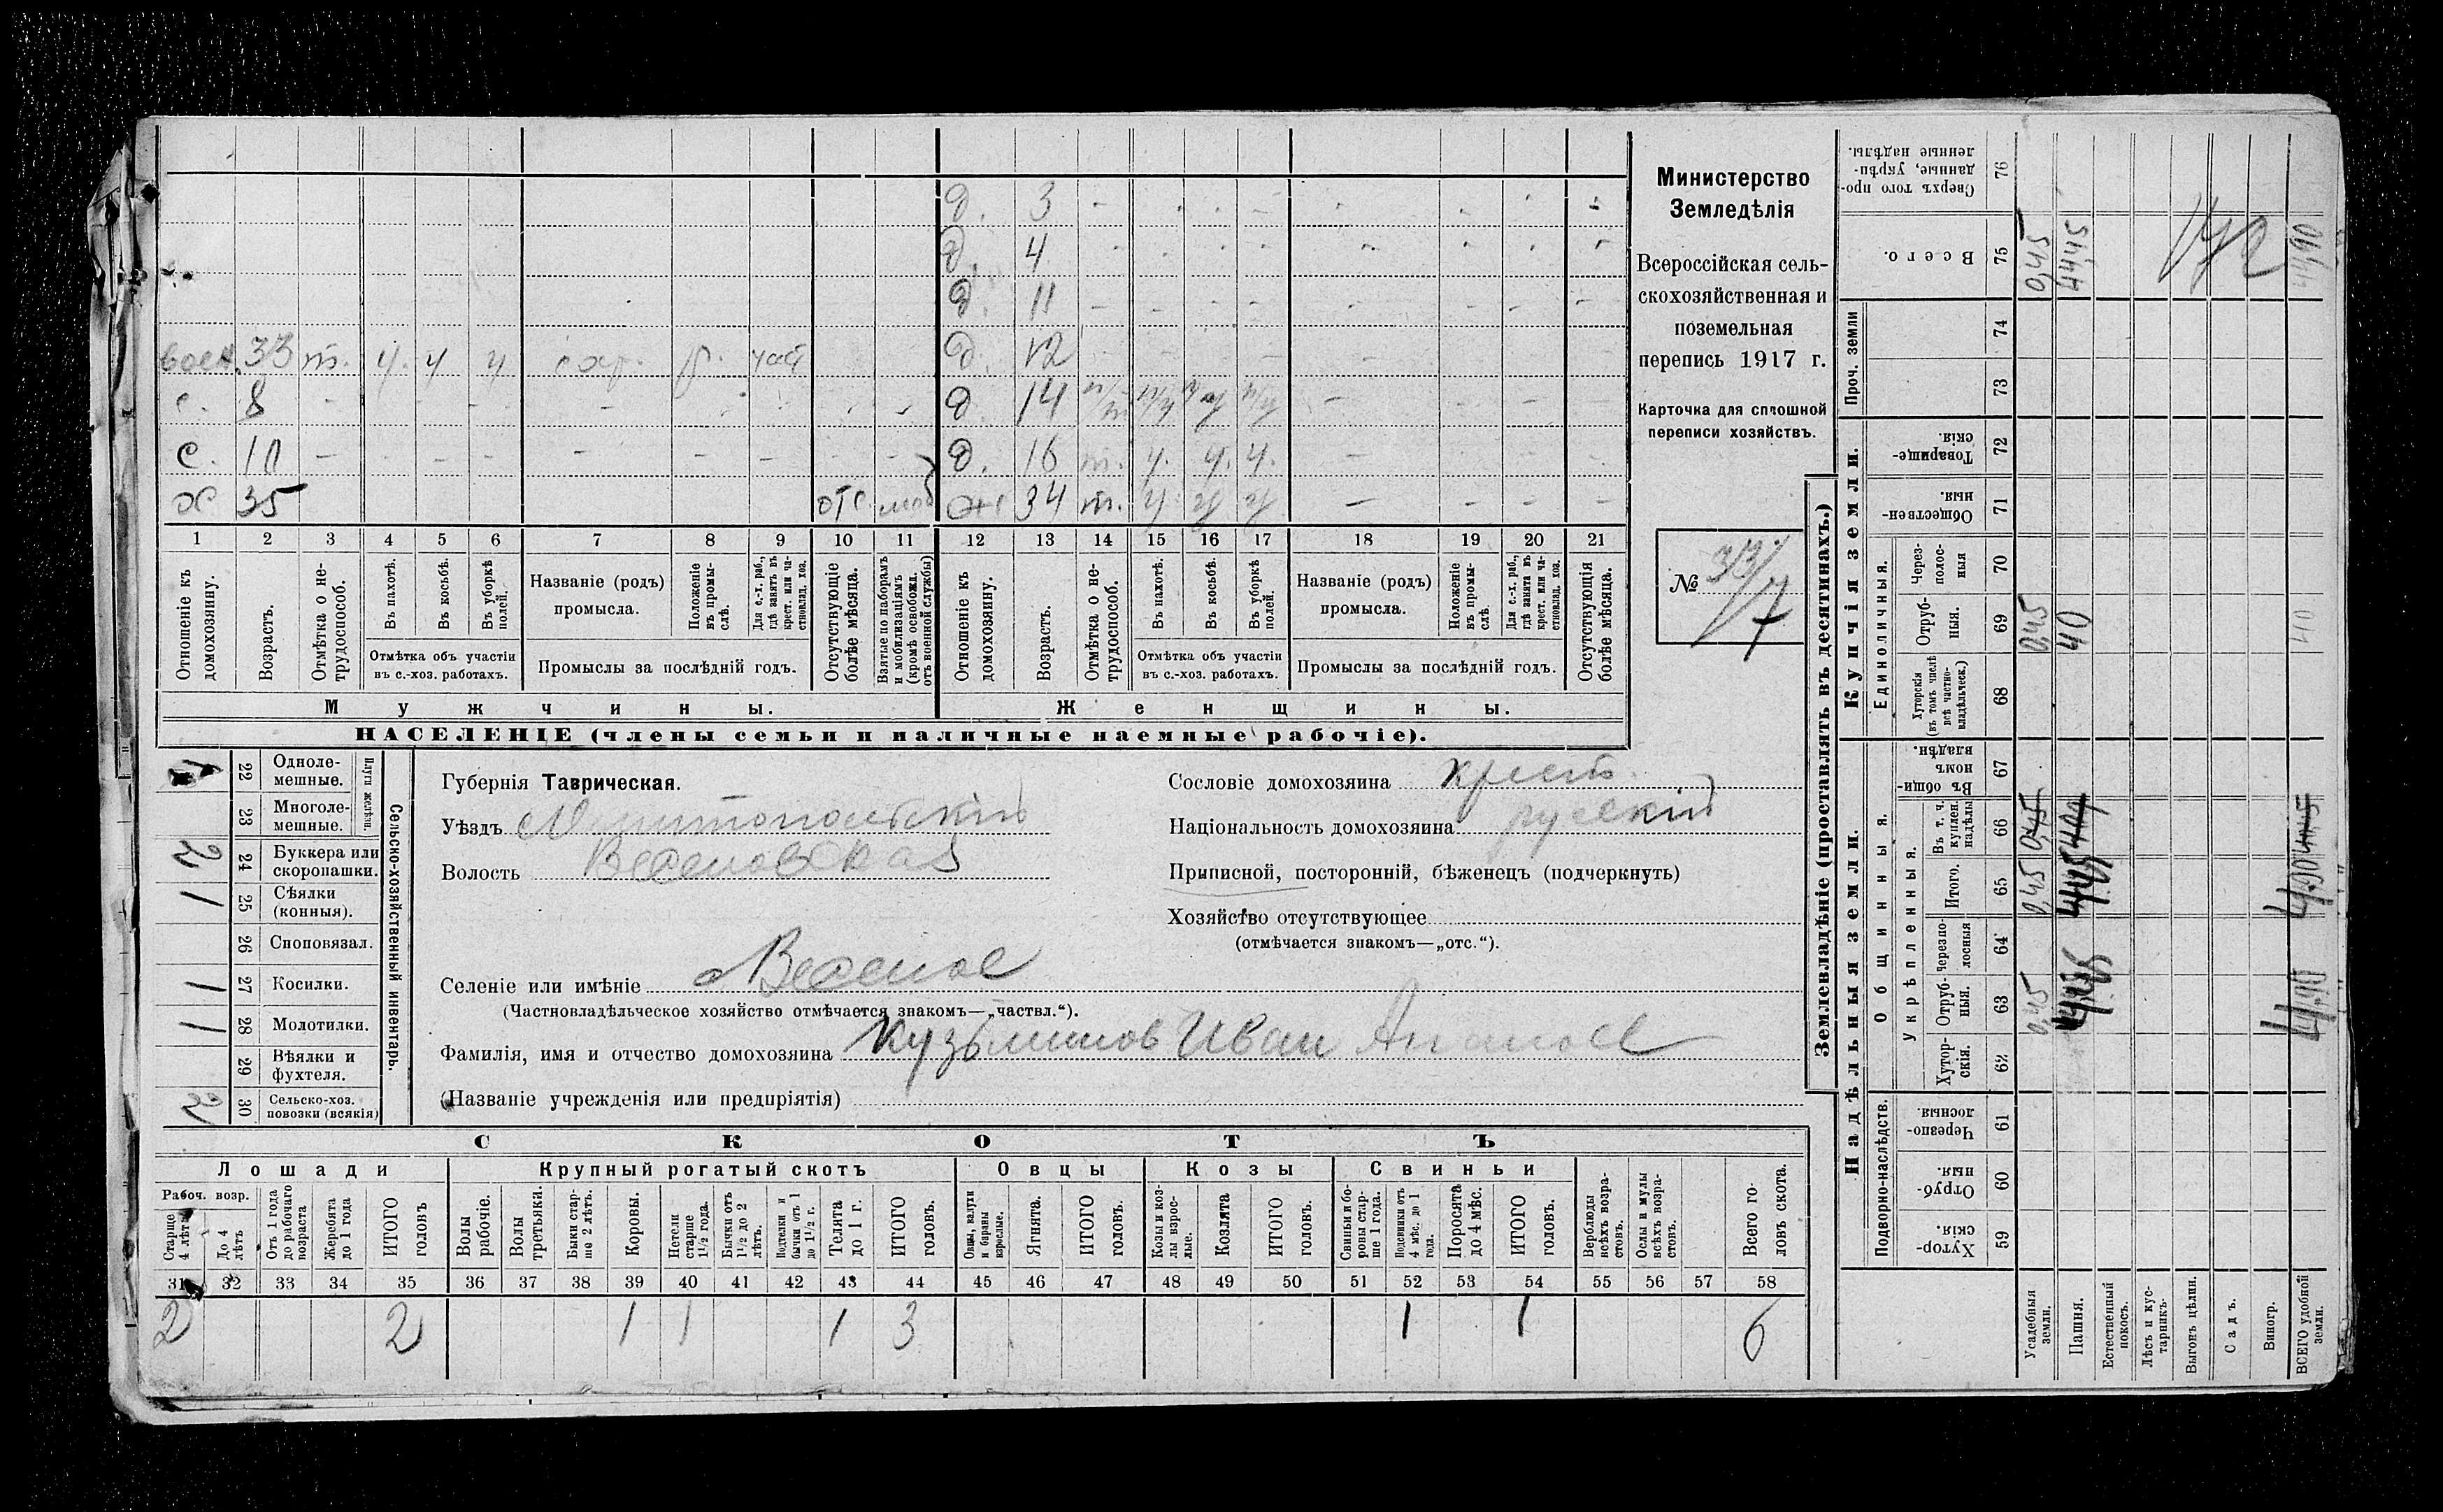 д. 3 - - - - - - - -
д. 4 - - - - - - - -
д. 11 - - - - - - - -
воен. 33 т. ч. ч ч д. 12 - - - - - - - -
с. 8 - - - - - - - - - д. 14 - - -
с. 10 - - - - - - - - - д. 16 т. ч. ч. ч. - - - -
х 35 отс. моб ж 34 т. ч ч ч - - - -
1 2 3 4 5 6 7 8 9 10 11 12 13 14 15 16 17 18 19 20 21
Отношеніе къ домохозяину.
Возрастъ.
Отмѣтка о нетрудоспособ.
Въ пахотѣ.
Въ косьбѣ.
Въ уборкѣ полей.
Отмѣтка объ участіи
въ с.-хоз. работахъ.
Названіе (родъ)
промысла.
Положеніе въ промыслѣ.
Для с.-х. раб., гдѣ занятъ въ крест. или частновлад. хоз.
Промыслы за послѣдній годъ.
Отсутствующіе болѣе мѣсяца.
Взятые по наборамъ и мобилизаціямъ (кромѣ освобожд. отъ военной службы)
Отношеніе къ домохозяину.
Возрастъ.
Отмѣтка о нетрудоспособ.
Въ пахотѣ.
Въ косьбѣ.
Въ уборкѣ полей.
Отмѣтка объ участіи
въ с.-хоз. работахъ.
Названіе (родъ)
промысла.
Положеніе въ промыслѣ.
Для с.-х. раб., гдѣ занята въ крест. или частновлад. хоз.
Промыслы за послѣдній годъ.
Отсутствующія болѣе мѣсяца.
Мужчины.
Женщины.
НАСЕЛЕНІЕ (члены семьи и наличные наемные рабочіе).
Министерство
Земледѣлія
Всероссійская сель-
скохозяйственная и
поземельная
перепись 1917 г.
Карточка для сплошной
переписи хозяйствъ.
№ 33/7
Сельско-хозяйственный инвентарь.
Плуги желѣзн.
22 Однолемешные.
23 Многолемешные.
2 24 Буккера или скоропашки.
1 25 Сѣялки (конныя).
26 Сноповязал.
1 27 Косилки.
1 28 Молотилки.
29 Вѣялки и фухтеля.
2 30 Сельско-хоз. повозки (всякія)
Губернія Таврическая.
Уѣздъ Мелитопольскій
Волость Веселовская
Селеніе или имѣніе Веселое
(Частновладѣльческое хозяйство отмѣчается знакомъ—„частвл.“).
Фамилія, имя и отчество домохозяина Кузьминов Иван
(Названіе учрежденія или предпріятія)
Сословіе домохозяина крест.
Національность домохозяина русскій
Приписной, посторонній, бѣженецъ (подчеркнуть)
Хозяйство отсутствующее
(отмѣчается знакомъ—„отс.“).
СКОТЪ
Лошади
Крупный рогатый скотъ
Овцы
Козы
Свиньи
Рабоч. возр.
Старше 4 лѣтъ
До 4 лѣтъ
Отъ 1 года до рабочаго возраста
Жеребята до 1 года
ИТОГО головъ
Волы рабочіе.
Волы третьяки.
Быки старше 2 лѣтъ.
Коровы.
Нетели старше 1½ года.
Бычки отъ 1½ до 2 лѣтъ.
Подтелки и бычки отъ 1 до 1½ г.
Телята до 1 г.
ИТОГО головъ.
Овцы, валухи и бараны взрослые.
Ягнята.
ИТОГО головъ.
Козы и козлы взрослые.
Козлята
ИТОГО головъ.
Свиньи и боровы старше 1 года.
Подсвинки отъ 4 мѣс. до 1 года.
Поросята до 4 мѣс.
ИТОГО головъ.
Верблюды всѣхъ возрастовъ.
Ослы и мулы всѣхъ возрастовъ.
Всего головъ скота.
31 32 33 34 35 36 37 38 39 40 41 42 43 44 45 46 47 48 49 50 51 52 53 54 55 56 57 58
2 2 1 1 1 3 1 1 6
Землевладѣніе (проставлять въ десятинахъ.)
Надѣльныя земли.
Купчія земли.
Проч. земли
Подворно-наслѣдств.
Общинныя.
Укрѣпленныя.
Единоличныя.
Хуторскія. 59
Отрубныя. 60
Черезполосныя. 61
Хуторскія. 62
Отрубныя. 63
Черезполосныя 64
Итого. 65
Въ т. ч. куплен. надѣлы 66
Въ общинномъ владѣн. 67
Хуторскія (въ томъ числѣ всѣ частновладѣльческ.) 68
Отрубныя. 69
Черезполосныя 70
Общественныя. 71
Товарищескія. 72
73
74
Всего. 75
Сверхъ того проданные, укрѣпленные надѣлы. 76
Усадебныя земли. 0,45 0,45 0,45 0,45 0,45
Пашня. 40 44,45
Естественный покосъ.
Лѣсъ и кустарникъ.
Выгонъ цѣлин.
Садъ.
Виногр.
ВСЕГО удобной земли. 4,90 4,90 40 44,90